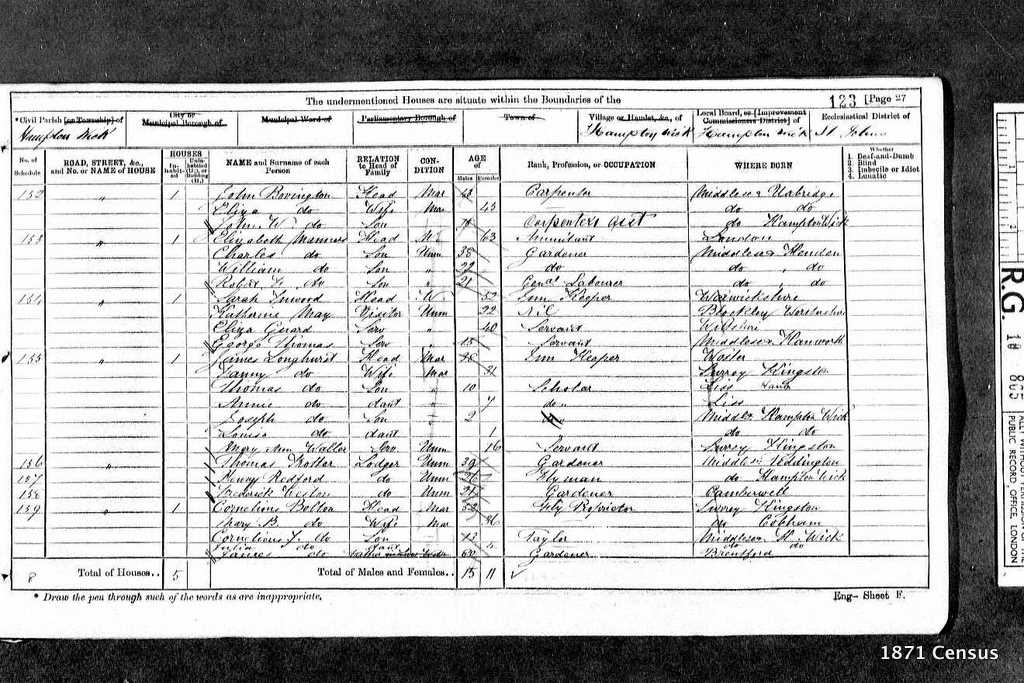 The undermentioned Houses are situate within the Boundaries of the 123 [Page 27
*Civil Parish [or Township] of City or Municipal Borough of Municipal Ward of Parliamentary Borough of Town of Village or Hamlet, &c., of Local Board, or [Improvement Commissioners District] of Ecclesiastical District of
Hampton Wick Hampton Wick Hampton Wick St Johns
No. of Schedule ROAD, STREET, &c., and No. or NAME of HOUSE HOUSES Inhabited Uninhabited (U.), or Building (B.) NAME and Surname of each Person RELATION to Head of Family CONDITION AGE of Males Females Rank, Profession, or OCCUPATION WHERE BORN Whether 1. Deaf-and-Dumb 2. Blind 3. Imbecile or Idiot 4. Lunatic
152 " 1 John Bovington Head Mar 43 Carpenter Middlesex Uxbridge
Eliza do Wife Mar 43 do do
John W. do Son Carpenters asst do Hampton Wick
153 " 1 Elizabeth Head W 63 Annuitant London
Charles do Son Unm 38 Gardener Middlesex Hendon
William do Son " 29 do do do
Robert do Son " 21 Genl Labourer do do
154 " 1 Sarah Head W. 52 Inn Keeper Warwickshire
Katherine May Visitor Unm 22 Blockley Worcestershire
Eliza Gerard Serv " 40 Servant Wiltshire
George Thomas Serv " 15 Servant Middlesex Hanworth
155 " 1 James Longhurst Head Mar Inn Keeper
Fanny do Wife Mar 31 Surrey Kingston
Thomas do Son " 10 Scholar Liss Hants
Annie do daut " 7 do Liss
Joseph do Son 2 Middsx Hampton Wick
Louisa do daut 1 do do
Mary Ann Waller Serv Unm 16 Servant Surrey Kingston
156 " Thomas Trotter Lodger Unm 39 Gardener Middlesex Teddington
157 Henry Redford do Unm 26 Flyman do Hampton Wick
158 Frederick do Unm 21 Gardener Camberwell
159 " 1 Cornelius Belton Head Mar 52 Fly Proprietor Surrey Kingston
Mary B. do Wife Mar 36 do Cobham
Cornelius J. do Son 13 Taylor Middlesex H. Wick
Julia do daut 4 do do
James do Father 60 Gardener Brentford
8 Total of Houses.. 5 Total of Males and Females.. 15 11
* Draw the pen through such of the words as are inappropriate. Eng- Sheet F.
R.G. 10 865
PUBLIC RECORD OFFICE, LONDON
1871 Census